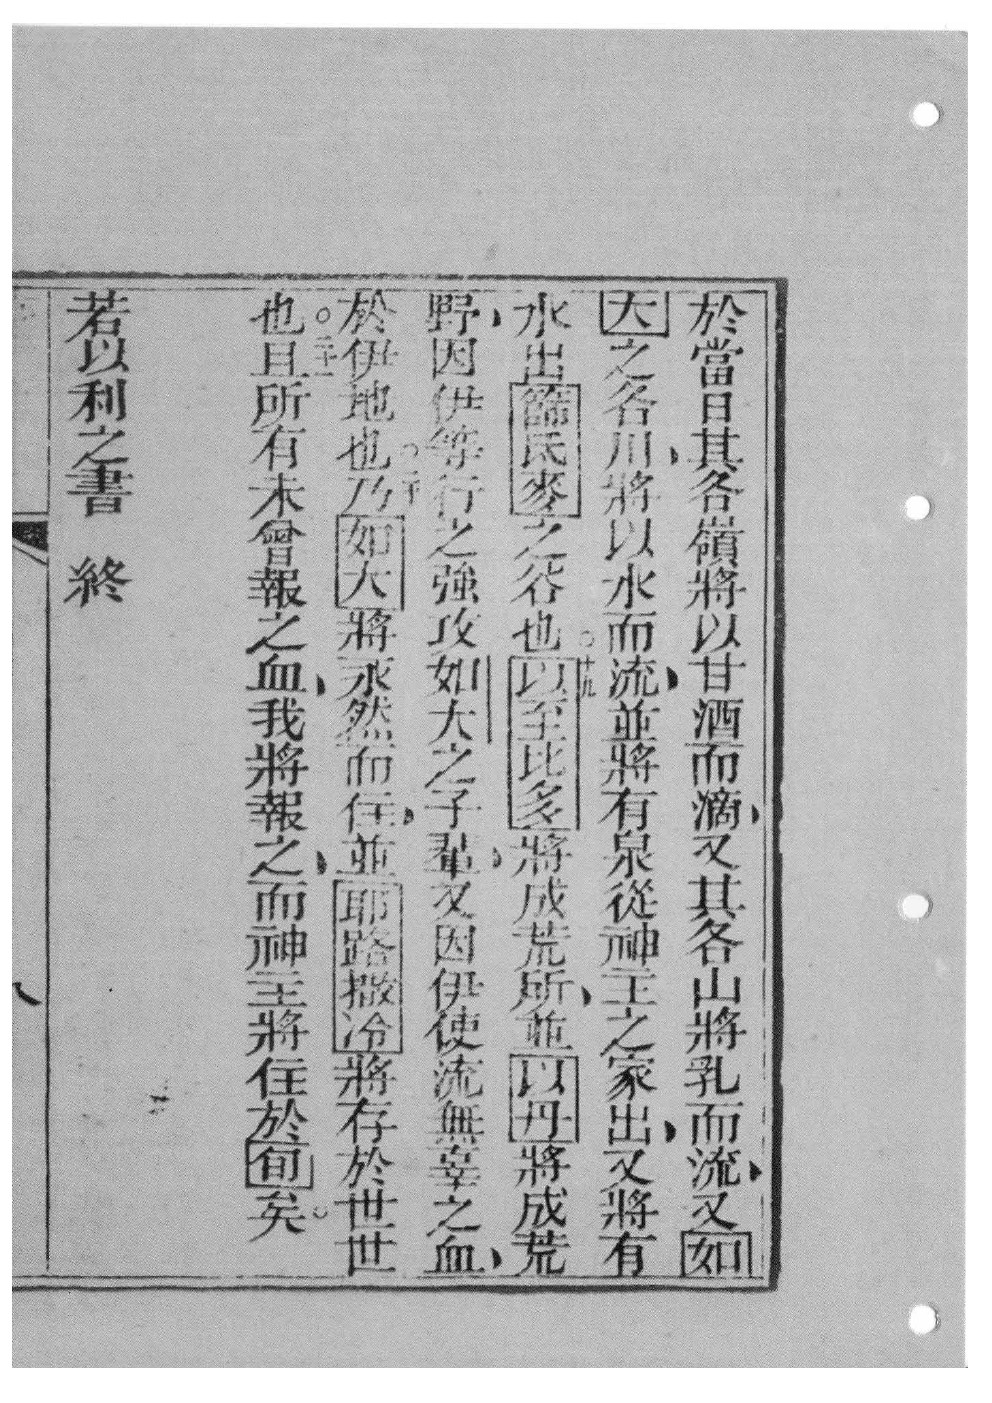 於當日其各嶺將以甘酒而滴、又其各山將乳而流、又如
大之各川、將以水而流、並將有泉從神主之家出、又將有
水出篩氏麥之谷也。十九以至比多將成荒所、並以丹將成荒
野、因伊等行之強攻如大之子輩、又因伊使流無辜之血、
於伊地也。二十乃如大將永然而住、並耶路撒冷將存於世世
也。二十一且所有未曾報之血、我將報之、而神主將住於旬矣。
若以利之書 終